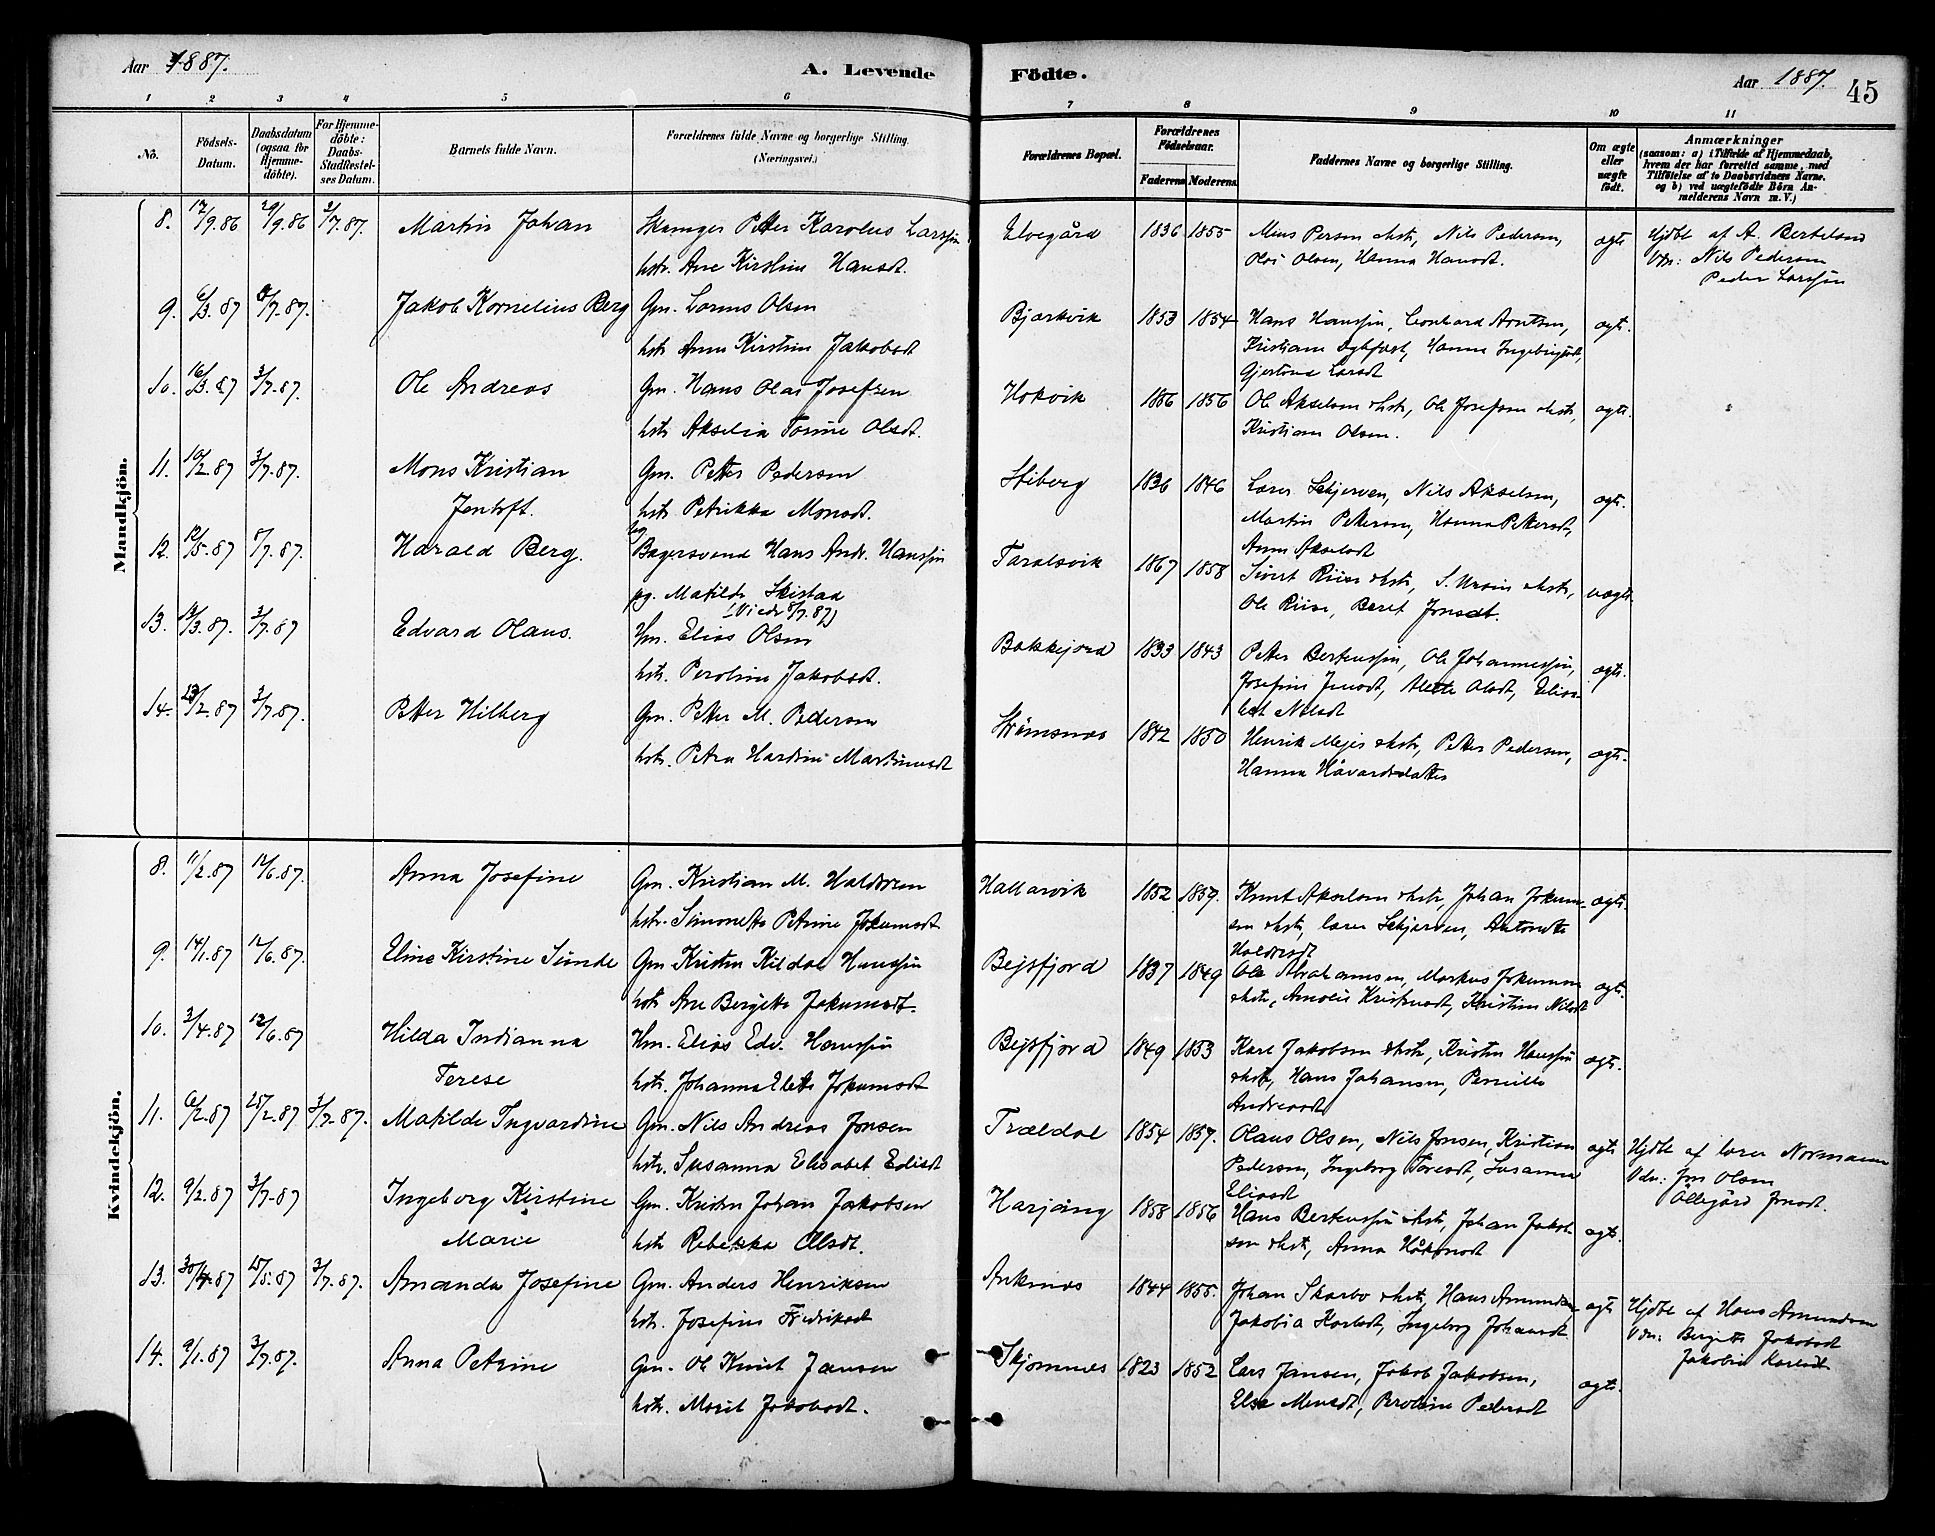 Aar 1887.
A. Levende Födte.
Aar 1887. 45
1 2 3 4 5 6 7 8 9 10 11
No.
Födsels-Datum.
Daabsdatum (ogsaa for Hjemmedöbte).
For Hjemmedöbte: Daabs-Stadfæstelses Datum.
Barnets fulde Navn.
Forældrenes fulde Navne og borgerlige Stilling. (Næringsvei.)
Forældrenes Bopæl.
Forældrenes Födselsaar.
Faderens Moderens
Faddernes Navne og borgerlige Stilling.
Om ægte eller uægte födt.
Anmærkninger
(saasom: a) i Tilfælde af Hjemmedaab, hvem der har forrettet samme, med Tilföielse af to Daabsvidners Navne, og b) ved uægtefödte Börn Anmelderens Navn m. V.)
Mandkjön.
8. 17/9.86 29/9.86 3/7.87. Martin Johan
Petter Karolus Larssøn
hstr. Ane Kirstine Hansdt.
Elvegård 1836 1855
Persen &hstr, Nils Pedersen,
Olai Olsen, Hanna Hansdt.
ægte
Hjdbt af A. Berteland
Vdn: Nils Pedersen
Peder Larssøn
9. 6/3.87 3/7.87. Jakob Kornelius Berg
Gm. Lorns Olsen
hstr Anne Kirstine Jakobsdt
Bjærkvik 1853 1854
Hans Hanssøn, Leonhard Arntsen,
Kristiane Hanna
Gjertrud Larsdt
ægte.
10. 16/3.87 3/7.87. Ole Andreas
Gm. Hans Olai Josefsen
hstr Akselia Tomine Olsdt.
Hokvik 1856 1856
Ole Akselsen &hstr, Ole Josefsen &hstr,
Kristian Olsen.
ægte.
11. 10/2.87 3/7.87. Mons Kristian
Jentoft.
Gm. Petter Pedersen
hstr Petrikka Monsdt.
Stiberg 1836 1846
Lærer Skjerven, Nils Akselsen,
Martin Pettersen, Hanna Pettersdt,
Anne Akselsdt
ægte.
12. 12/5.87 8/7.87. Harald Berg.
Ug. Bagersvend Hans Andr. Hanssøn
pg. Matilde Skistad
(Viede 8/7.87)
Taraldsvik 1867 1858
Sivert Riise &hstr, S. &hstr,
Ole Riise, Beret Jonsdt.
uægte.
13. 13/3.87. 3/7.87 Edvard Olaus.
Hm. Elias Olsen
hstr. Peroline Jakobsdt.
Bakkejord 1833 1843
Petter Bertenssøn, Ole Johannessøn,
Josefine Jensdt, Mette Olsdt, Elisabet Nilsdt
ægte.
14. 23/2.87 3/7.87. Petter Hilberg
Gm. Petter M. Pedersen
hstr. Petra Hardine Martinusdt
Strømsnes 1842 1850
Henrik Mejer &hstr, Petter Pedersen,
Hanna Håvardsdatter
ægte.
Kvindekjön.
8. 11/2.87 12/6.87. Anna Josefine
Gm. Kristian M. Haldorsen
hstr. Simonette Petrine Jokumsdt
Hallarvik 1852 1859.
Knut Akselsen &hstr, Johan Jokumsen &hstr, lærer Skjerven, Antonette
Haldorsdt
ægte.
9. 14/1.87 12/6.87. Eline Kirstine Sünde
Gm Kristen Kildal Hanssøn
hstr Ane Bergitte Jokumsdt.
Bejsfjord 1837 1849
Ole Abrahamsen, Markus Jokumsen
&hstr, Amalie Kristensdt, Kristine Nilsdt
ægte.
10. 3/4.87 12/6.87 Hilda Indianna
Terese
Hm. Elias Edv. Hanssøn
hstr. Johanna Elete Jokumsdt
Bejsfjord 1849 1853
Karl Jakobsen &hstr, Kristen Hanssøn
&hstr, Hans Johansen, Pernille
Andreasdt
ægte.
11. 6/2.87 25/2.87 3/7.87. Matilde Ingvardine
Gm. Nils Andreas Jonsen
hstr. Susanna Elisabet Eliasdt
Trældal 1854 1857.
Olaus Olsen, Nils Jonsen, Kristian
Pedersen, Ingeborg Toresdt, Susanna
Eliasdt
ægte
Hjdbt af lærer Normann
Vdn: Jon Olsen
Ollegård Jonsdt.
12. 9/2.87 3/7.87 Ingeborg Kirstine
Marie
Gm. Kristen Johan Jakobsen
hstr Rebekka Olsdt.
Harjång 1858 1856
Hans Bertenssøn &hstr, Johan Jakobsen &hstr, Anna Håkonsdt
ægte.
13. 30/4.87 15/5.87 3/7.87. Amanda Josefine
Gm. Anders Henriksen
hstr. Josefine Fredriksdt
Ankenes 1844 1855.
Johan Skarbo &hstr, Hans Amundsen,
Jakobia Karlsdt, Ingeborg Johansdt
ægte
Hjdbt af Hans Amundsen
Vdn: Bergitte Jakobsdt
Jakobia Karlsdt
14. 9/1.87 3/7.87. Anna Petrine
Gm. Ole Knut Jansen
hstr. Marit Jakobsdt.
Skjomnes 1823 1852
Lars Jansen, Jakob Jakobsen,
Else Monsdt, Peroline Pedersdt
ægte.